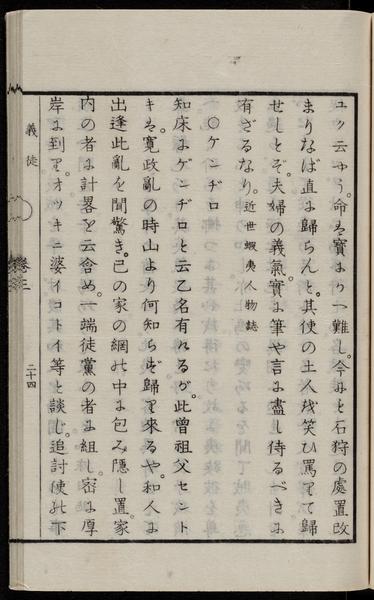 ユク云やう。命は實よ一ツ難し。今にも石狩の處置改
まりなば直に歸らんと。其使の土人を笑ひ罵りて歸
せしとぞ。夫婦の義氣實に筆や言に盡し侍るべきに
有ざるなり。近世蝦夷人物誌
〇ゲンヂロ
知床にゲンヂロと云乙名有けるが。此曾祖父セント
キは。寛政亂の時山より何知らず歸り來るや。和人に
出逢此亂を聞驚き。己の家の網の中に包み隠し置。家
内の者は計畧を云含め。一端徒黨の者に組し。密に厚
岸に到り。オツキニ婆イコトイ等と談じ。追討使の下
義徒
巻二
二十四